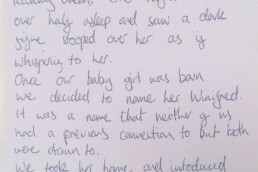 over half asleep and saw a dark
figure stooped over her as if
whispering to her.
Once our baby girl was born
we decided to name her Winifred.
It was a name that neither of us
had a previous connection to but both
were drawn to.
We took her home, and introduced